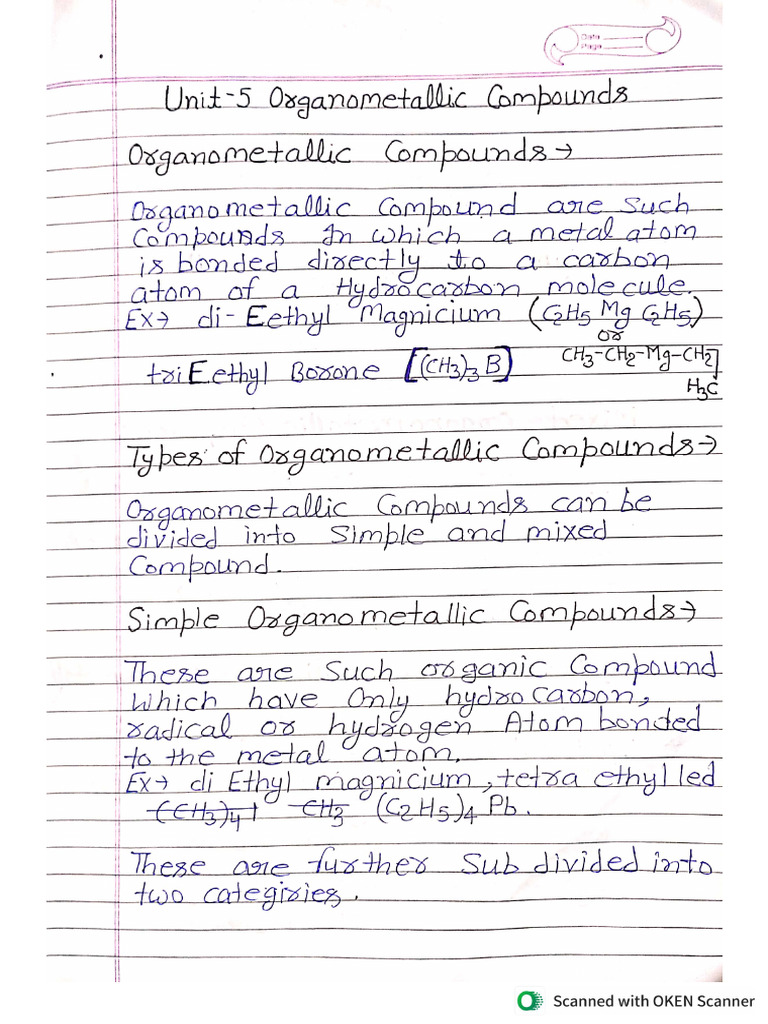 Date
Page
Unit-5 Organometallic Compounds
Organometallic Compounds→
Organometallic Compound are such
Compounds In which a metal atom
is bonded directly to a carbon
atom of a Hydrocarbon molecule.
Ex→ di-Eethyl Magnicium (C2H5 Mg C2H5)
or
CH3-CH2-Mg-CH2
triEethyl Borone [(CH3)3 B]
H3C
Types of Organometallic Compounds→
Organometallic Compounds can be
divided into Simple and mixed
Compound.
Simple Organometallic Compounds→
These are Such organic Compound
which have Only hydrocarbon,
radical or hydrogen Atom bonded
to the metal atom.
Ex→ di Ethyl magnicium, tetra ethyl led
(CH3)4 CH3 (C2H5)4 Pb.
These are further Sub divided into
two categiries.
Scanned with OKEN Scanner